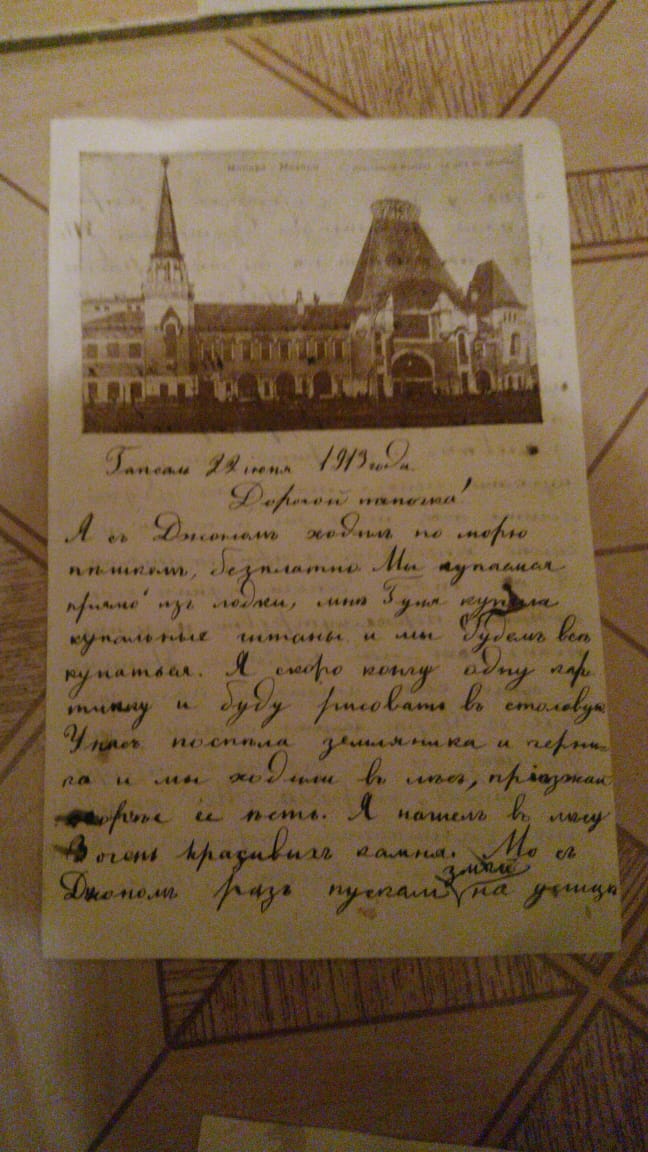 Москва - Moscou
Гапсаль 22 июня 1913 года
Дорогой папочка!
Я съ Джономъ ходилъ по морю
пѣшкомъ, безплатно Мы купаемся
прямо изъ лодки, мнѣ Гуня купила
купальные штаны и мы будемъ всѣ
купаться. Я скоро кончу одну кар
тинку и буду рисовать въ столовую
У насъ поспѣла земляника и черни-
га и мы ходили въ лѣсъ, приѣзжай
скорѣе ее ѣсть. Я нашелъ въ лѣсу
3 очень красивихъ камня. Мо съ
Джономъ разъ пускали змѣй на улицѣ